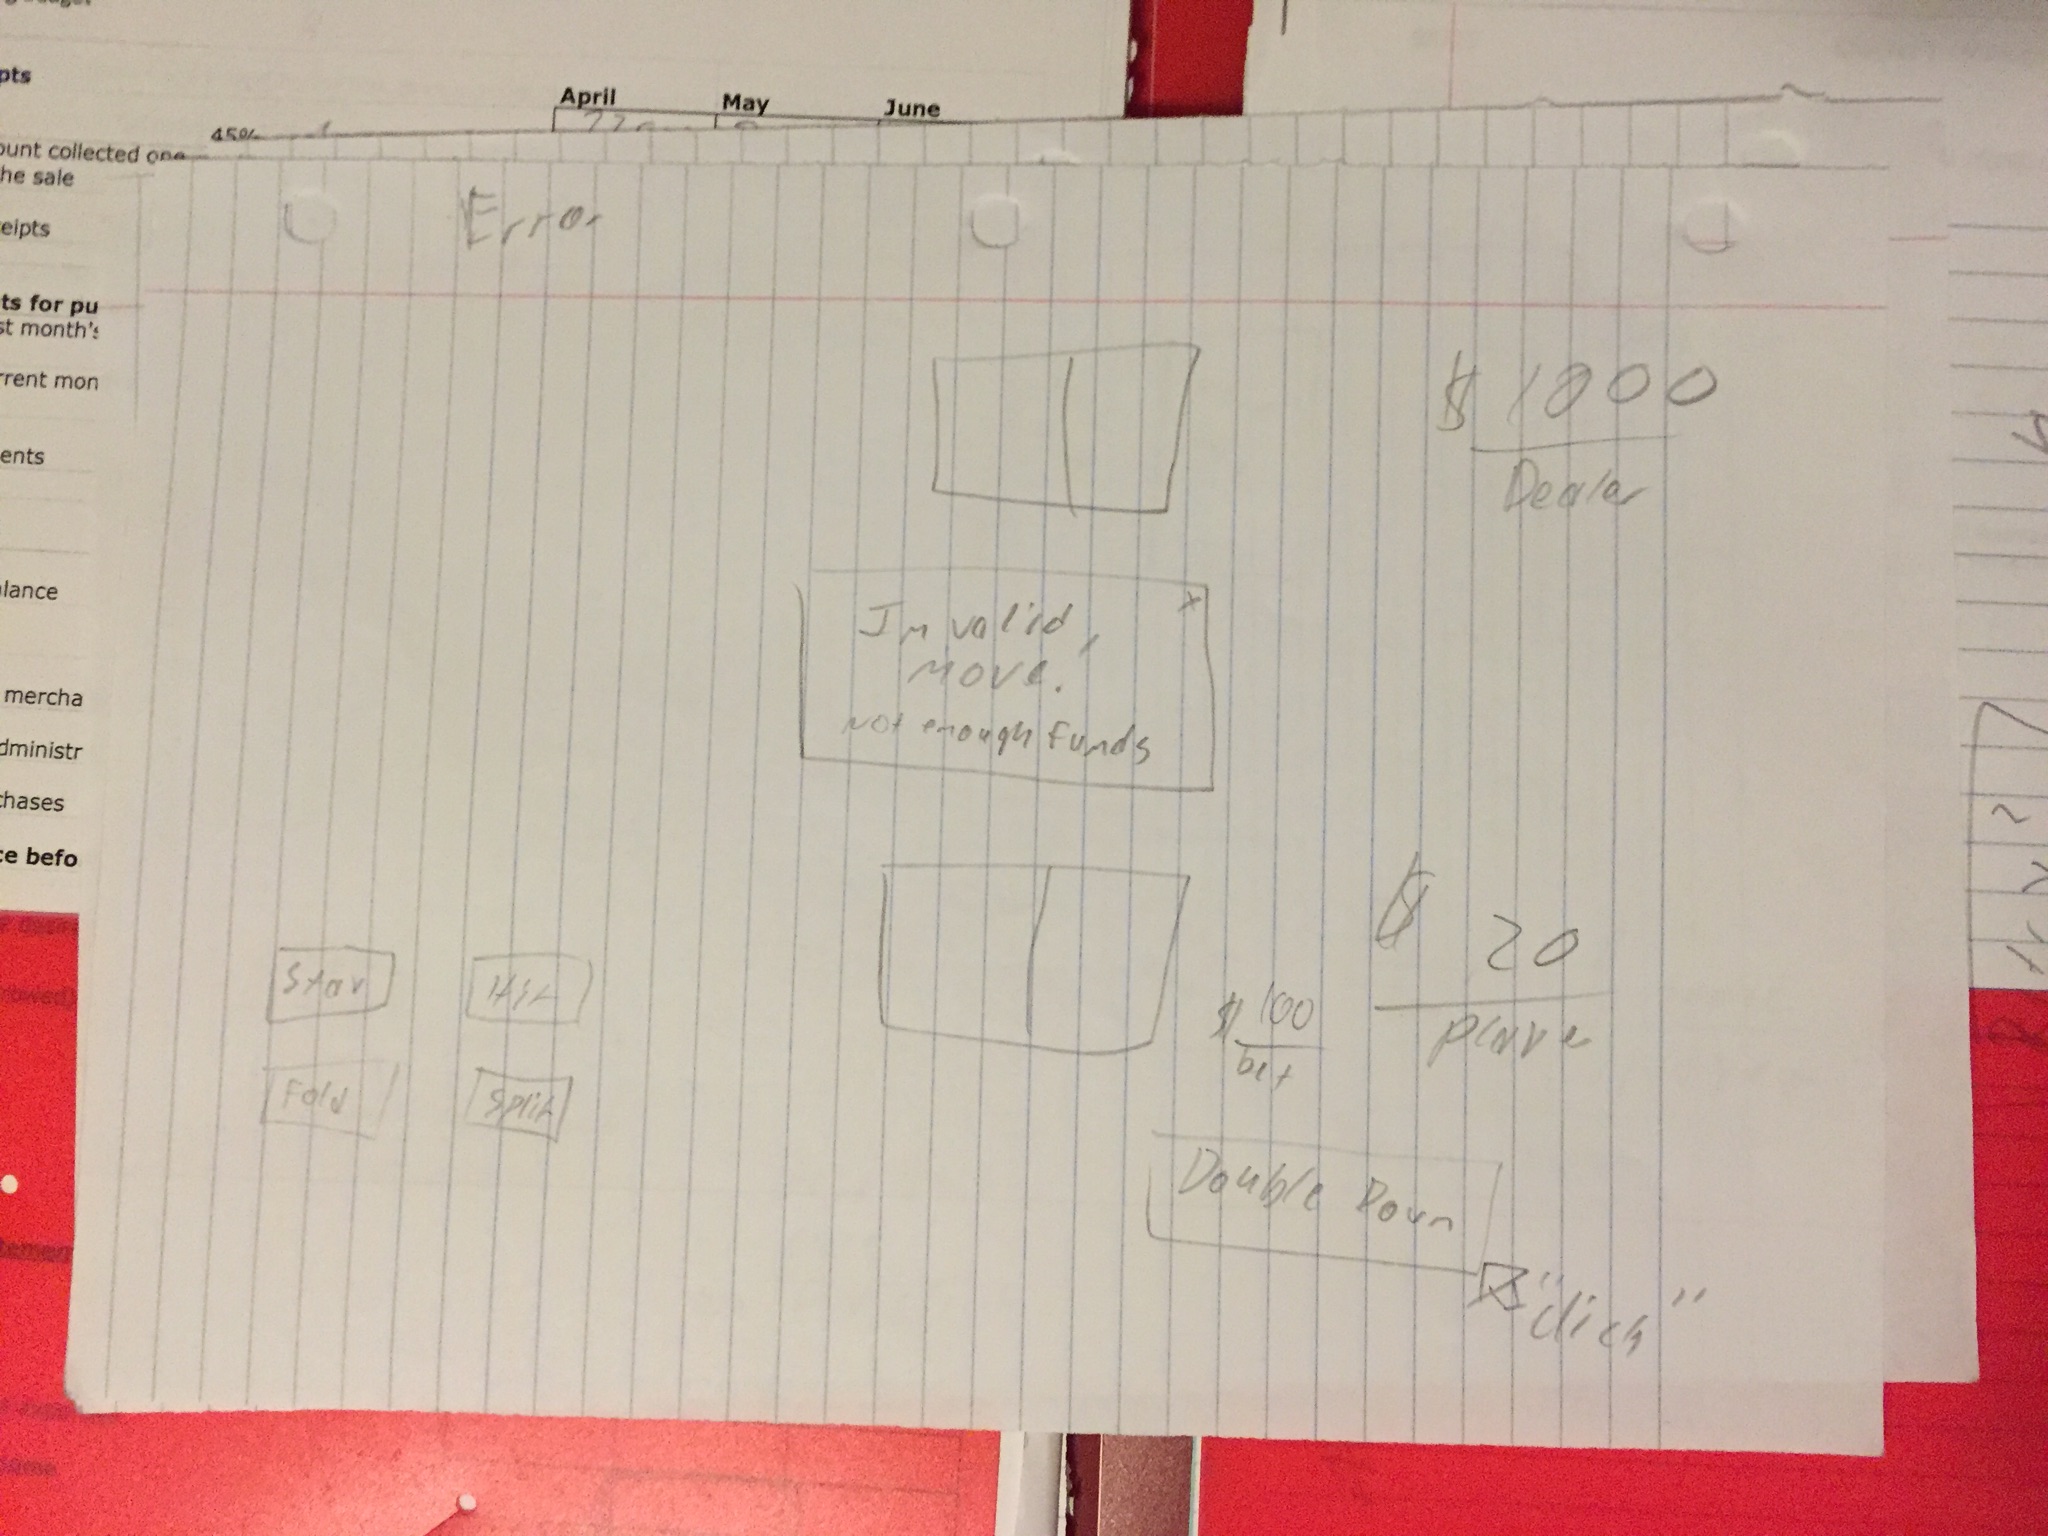 April May June
45%
ount collected one
he sale
eipts
ts for pu
st month's
rrent mon
ents
lance
mercha
dministr
chases
ce befo
Error
$ 1000
Dealer
x
Invalid,
move!
Not enough Funds
$ 20
$ 100
bet
Stay Hit
Fold Split
Double Down
"click"